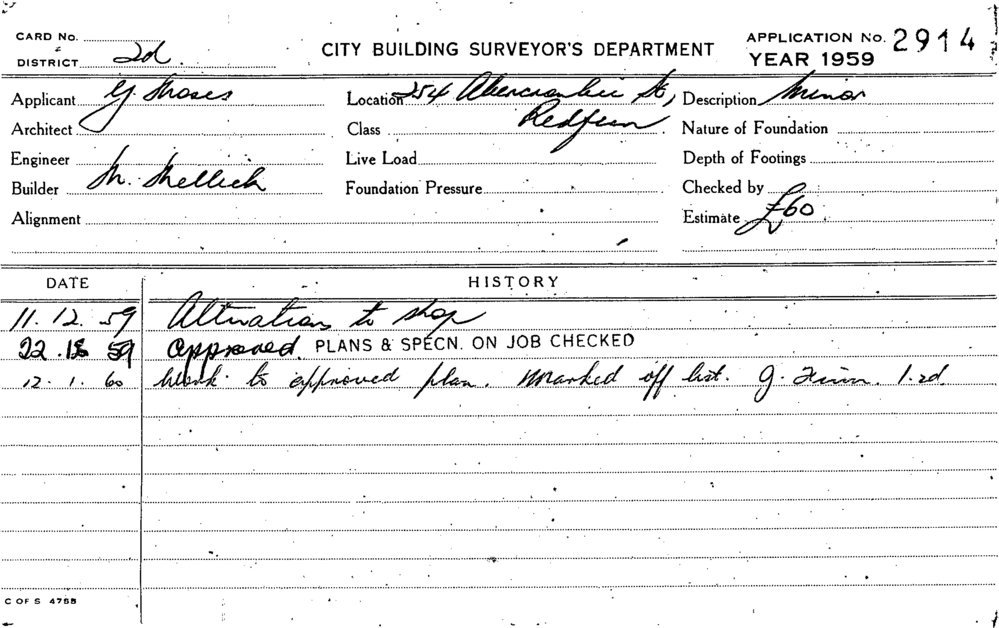 CARD No.
DISTRICT 2d.
CITY BUILDING SURVEYOR'S DEPARTMENT
APPLICATION No. 2914
YEAR 1959
Applicant G Moses
Location 254 Abercrombie St,
Description Minor
Architect
Class Redfern
Nature of Foundation
Engineer
Live Load
Depth of Footings
Builder M. Mellick
Foundation Pressure
Checked by
Alignment
Estimate £60
DATE HISTORY
11.12.59 Alterations to shop
22.12 59 Approved. PLANS & SPECN. ON JOB CHECKED
12.1.60 Work to approved plan. Marked off list. J. 1.2d.
C OF S 4755